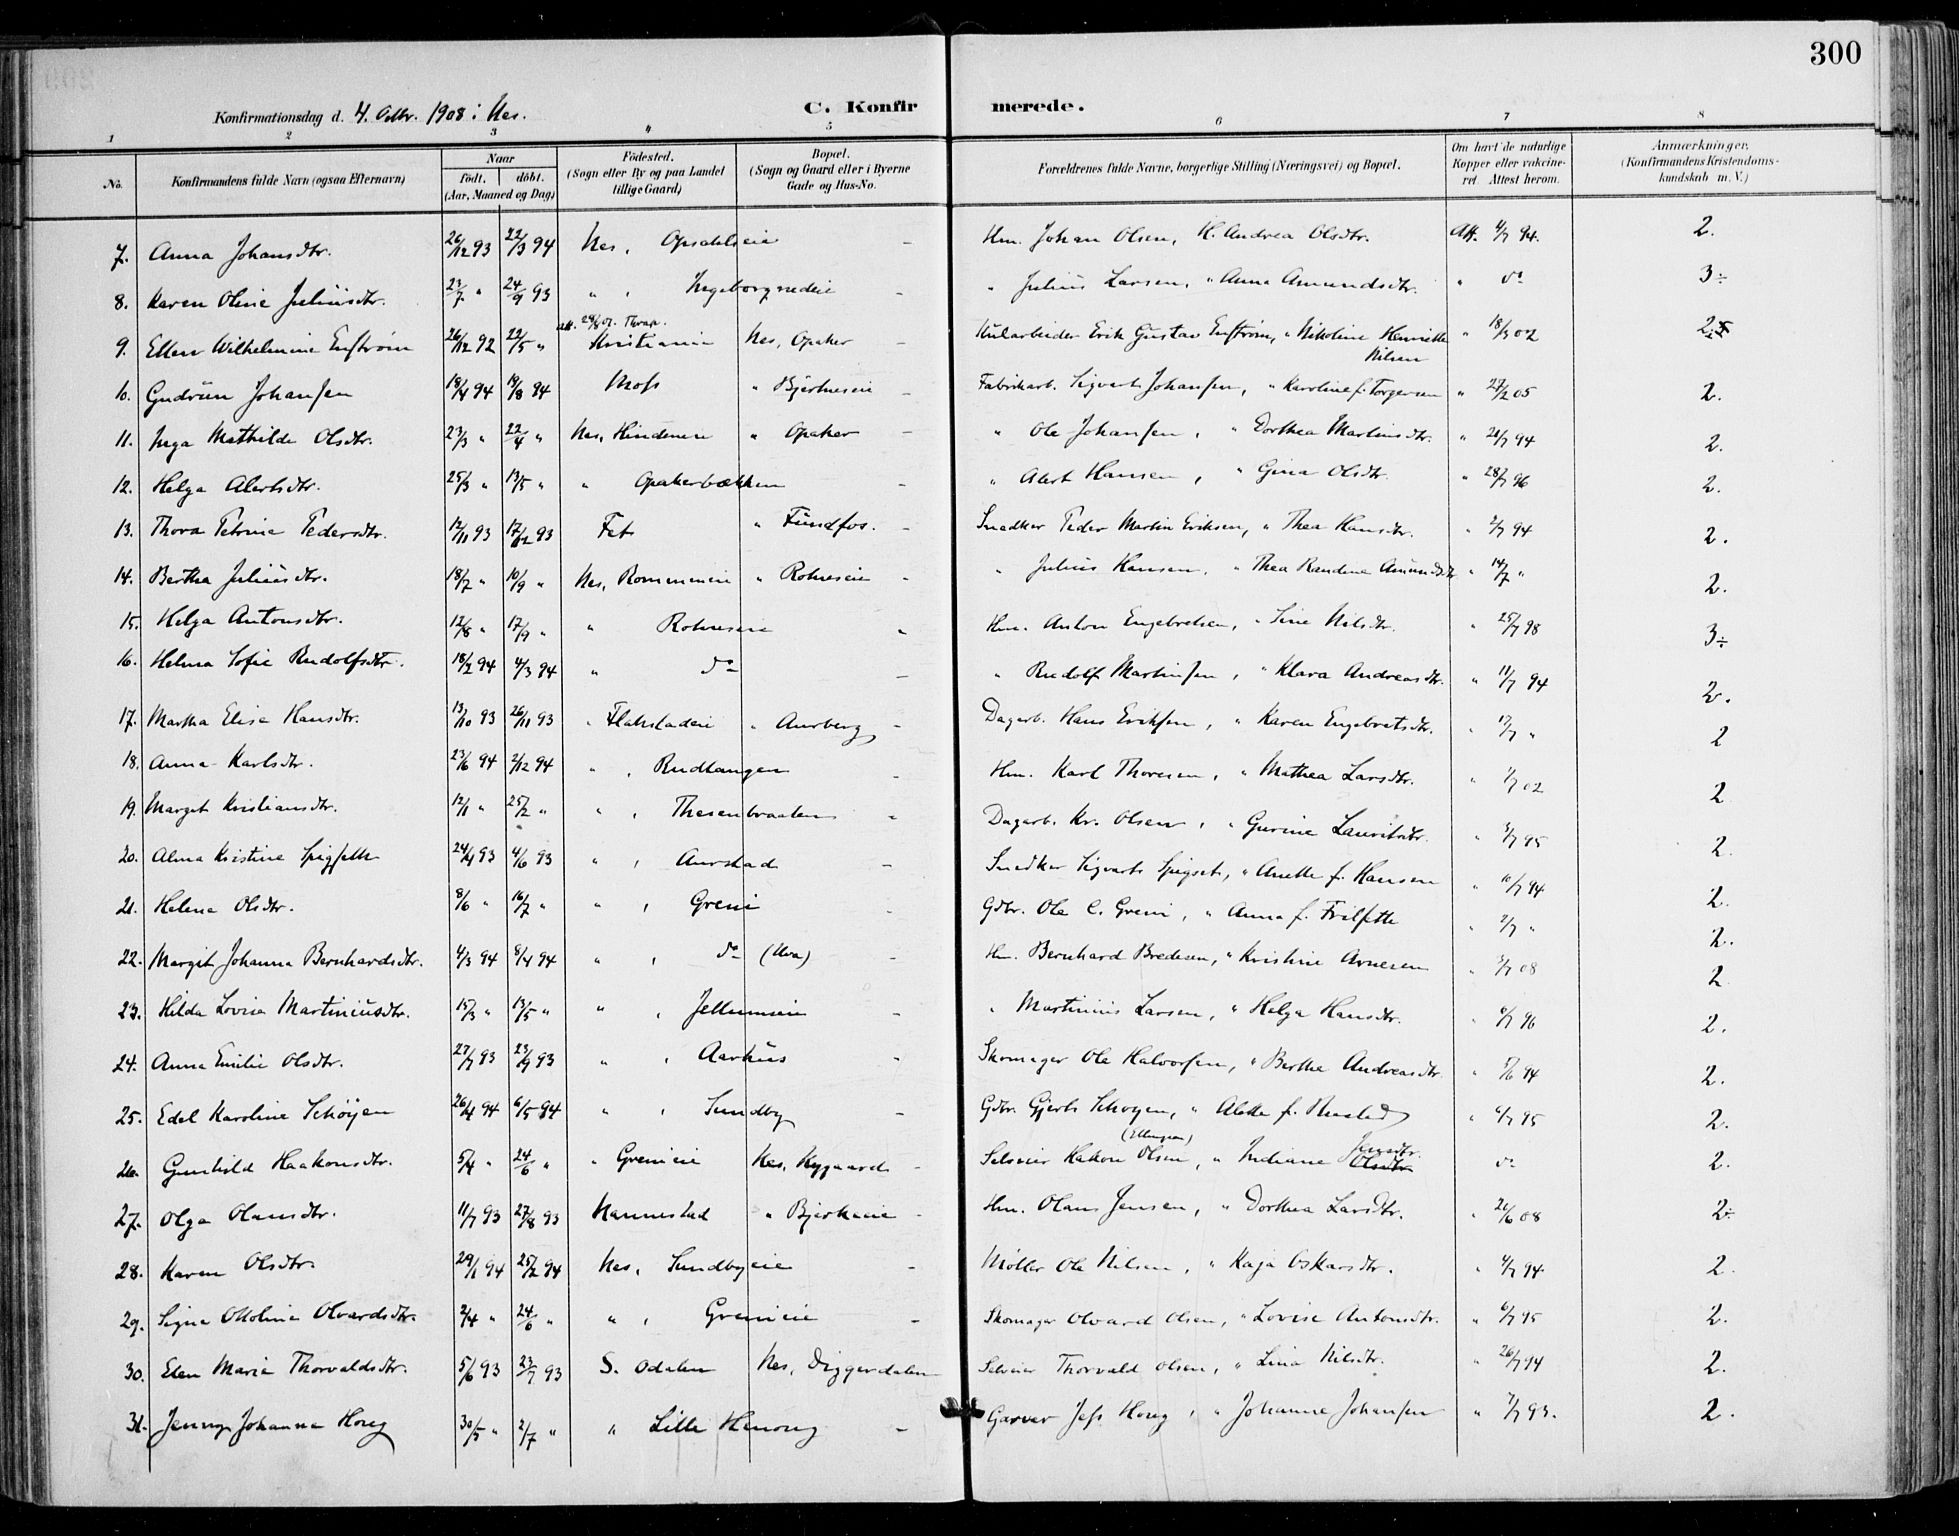 300
Konfirmationsdag d. 4. Octbr. 1908 i Nes.
C. Konfirmerede.
1 2 3 4 5 6 7 8
No. Konfirmandens fulde Navn (ogsaa Efternavn) Naar födt. döbt. (Aar, Maaned og Dag) Födested. (Sogn eller By og paa Landet tillige Gaard) Bopæl. (Sogn og Gaard eller i Byerne Gade og Hus-No. Forældrenes fulde Navne, borgerlige Stilling (Næringsvei) og Bopæl. Om havt de naturlige Kopper eller vakcineret. Attest herom. Anmærkninger. (Konfirmandens Kristendomskundskab m. V.)
7. Anna Johansdtr. 26/12 93 22/3 94 Nes, Opsahlseie – Hm. Johan Olsen, H. Andrea Olsdtr. Att. 4/7 94. 2.
8. Karen Oline Juliusdtr. 23/7 " 24/9 93 " , Ingeborgrudeie – " Julius Larsen, " Anna Amundsdtr. " do 3÷
9. Ellen Wilhelmine Enstrøm 26/12 92 22/5 " Kristiania Nes, Opaker – Kularbeider Erik Gustav Enstrøm, " Nikoline Henriette Nilsen " 18/3 02
10. Gudrun Johansen 18/4 94 19/8 94 Moss " Bjerkneseie – Fabrikarb. Sigvart Johansen, " Karoline f. Torgersen " 27/2 05 2.
11. Inga Mathilde Olsdtr. 23/3 " 22/4 " Nes, " Opaker – " Ole Johansen, " Dorthea Martinsdtr. " 20/7 94 2.
12. Helga Alertsdtr. 25/3 " 13/5 " " Opakerbækken – " Alert Hansen, " Gina Olsdtr. " 28/7 96 2.
13. Thora Petrine Pedersdtr. 12/11 93 17/12 93 Fet " Fundfos. – Snedker Peder Martin Eriksen, " Thea Hansdtr. " 2/7 94 2.
14. Bertha Juliusdtr. 18/7 " 10/9 " Nes, Rommeneie " Rotneseie – " Julius Hansen, " Thea Randine Amundsdtr " 14/7 " 2.
15. Helga Antonsdtr. 12/8 " 17/9 " " Rotneseie " Hm. Anton Engebretsen, " Sine Nilsdtr. " 25/7 98 3÷
16. Helma Sofie Rudolfsdtr. 18/2 94 4/3 94 " do – " Rudolf Martinsen, " Klara Andreasdtr. " 11/7 94 2.
17. Martha Elise Hansdtr. 13/10 93 26/11 93 " Flakstadeie " Aurberg – Dagarb. Hans Eriksen, " Karen Engebretsdtr. " 17/7 " 2
18. Anna Karlsdtr. 23/6 94 2/12 94 " , Rudtangen – Hm. Karl Thoresen, " Mathea Larsdtr. " 1/7 02 2
19. Margit Kristiansdtr. 12/1 " 25/2 " " , Thesenbraaten – Dagarb. Kr. Olsen, " Gurine Lauritsdtr. " 3/7 95 2.
20. Alma Kristine Spigseth 24/4 93 4/6 93 " , Aurstad – Snedker Sigvart Spigset, " Anette f. Hansen " 10/7 94 2.
21. Helena Olsdtr. 8/6 " 16/7 " " , Greni – Gdbr. Ole C. Greni, " Anna f. Frilseth " 2/7 " 2.
22. Margit Johanna Bernhardsdtr. 4/3 94 8/4 94 " , do (Uva) – Hm. Bernhard Bredesen, " Kristine Arnesen " 3/7 08 2
23. Hilda Lovise Martiniusdtr. 15/3 " 13/5 " " , Jellumseie – " Martinius Larsen, " Helga Hansdtr. " 6/7 96 2.
24. Anna Emilie Olsdtr. 27/7 93 23/9 93 " , Aarhus – Skomager Ole Halvorsen, " Berthe Andreasdtr. " 5/6 94 2.
25. Edel Karoline Schøyen 26/4 94 6/5 94 " , Sundby – Gdbr. Gjerts Schøyen, " Alette f. " 6/7 95 2.
26. Gunhild Haakonsdtr. 5/4 " 24/6 " " Grenieie Nes, Nygaard – Selveier Hakon Olsen, " Indiane Jensdtr. Olsdtr do 2.
27. Olga Olausdtr. 11/7 93 27/8 93 Nannestad " Bjerkeeie – Hm. Olaus Jensen, " Dorthea Larsdtr. " 20/6 08 2÷
28. Karen Olsdtr. 29/1 94 25/2 94 Nes, Sundbyeie – Møller Ole Nilsen, " Kaja Oskarsdtr. " 4/7 94. 2.
29. Signe Ottoline Olvardsdtr. 2/4 " 24/6 " " , Grenieie – Skomager Olvard Olsen, " Lovise Antonsdtr. " 6/7 95 2.
30. Elen Marie Thorvaldsdtr. 5/6 93 23/7 93 S. Odalen Nes, Diggerdalen Selveier Thorvald Olsen, " Lina Nilsdtr. " 26/7 94 2.
31. Jenny Johanna Houg 30/5 " 2/7 " " Lille Henoug – Garver Jess Houg, " Johanne Johansen " 7/7 93. 2.